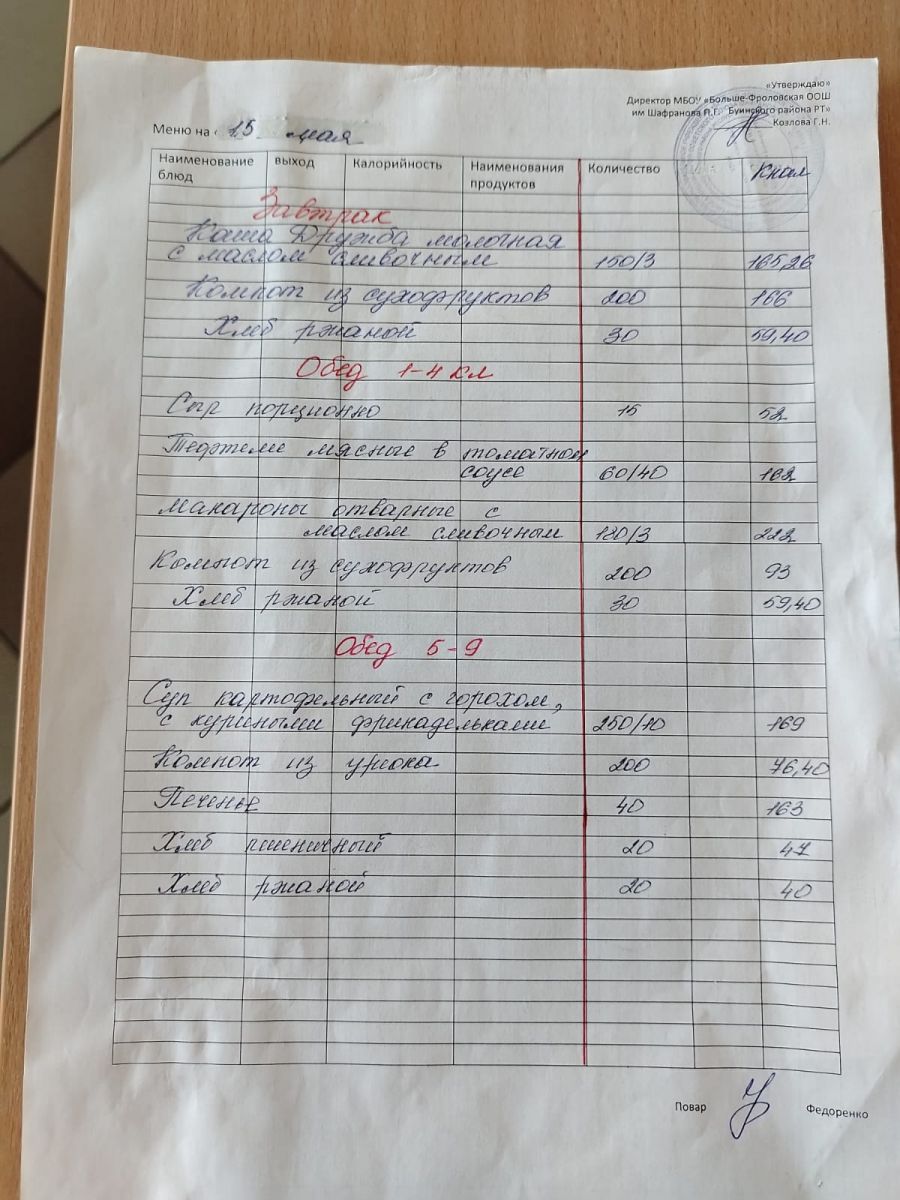 «Утверждаю»
Директор МБОУ «Больше-Фроловская ООШ
им Шафранова П.Г. Буинского района РТ»
Козлова Г.Н.
Меню на « 15 мая
Наименование блюд выход Калорийность Наименования продуктов Количество Ккал
Завтрак
Каша Дружба молочная
с маслом сливочным 150/3 165,26
Компот из сухофруктов 200 166
Хлеб ржаной 30 59,40
Обед 1-4 кл
Сыр порционно 15 52
Тефтели мясные в томатном
соусе 60/40 162
Макароны отварные с
маслом сливочным 120/3 222
Компот из сухофруктов 200 93
Хлеб ржаной 30 59,40
Обед 5-9
Суп картофельный с горохом,
с куриными фрикадельками 250/10 169
Компот из урюка 200 76,40
Печенье 40 163
Хлеб пшеничный 20 47
Хлеб ржаной 20 40
Повар Федоренко